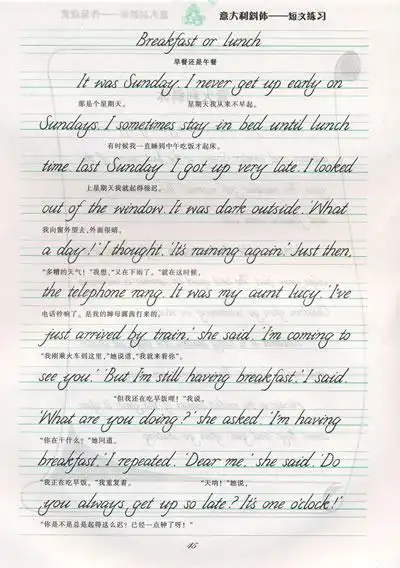 意大利斜体——短文练习
Breakfast or lunch
早餐还是午餐
It was Sunday. I never get up early on
那是个星期天。 星期天我从来不早起。
Sundays. I sometimes stay in bed until lunch
有时候我一直睡到中午吃饭才起床。
time. last Sunday I got up very late. I looked
上星期天我就起得很迟。
out of the window. It was dark outside. 'What
我向窗外望去,外面很暗。
a day!' I thought. 'It's raining again.' Just then,
“多糟的天气！”我想,“又在下雨了。”就在这时候,
the telephone rang. It was my aunt lucy. 'I've
电话铃响了。是我的母露打来的。
just arrived by train,' she said. 'I'm coming to
“我刚乘火车到这里,”她说道,“我就来看你”。
see you.' 'But I'm still having breakfast,' I said.
“但我还在吃早饭哩！”我说。
'What are you doing?' she asked. 'I'm having
“你在干什么？”她问道。
breakfast,' I repeated. 'Dear me,' she said. 'Do
“我正在吃早饭。”我重复着。 “天呐！”她说,
you always get up so late? It's one o'clock!'
“你是不是总是起得这么迟？已经一点钟了呀！”
45